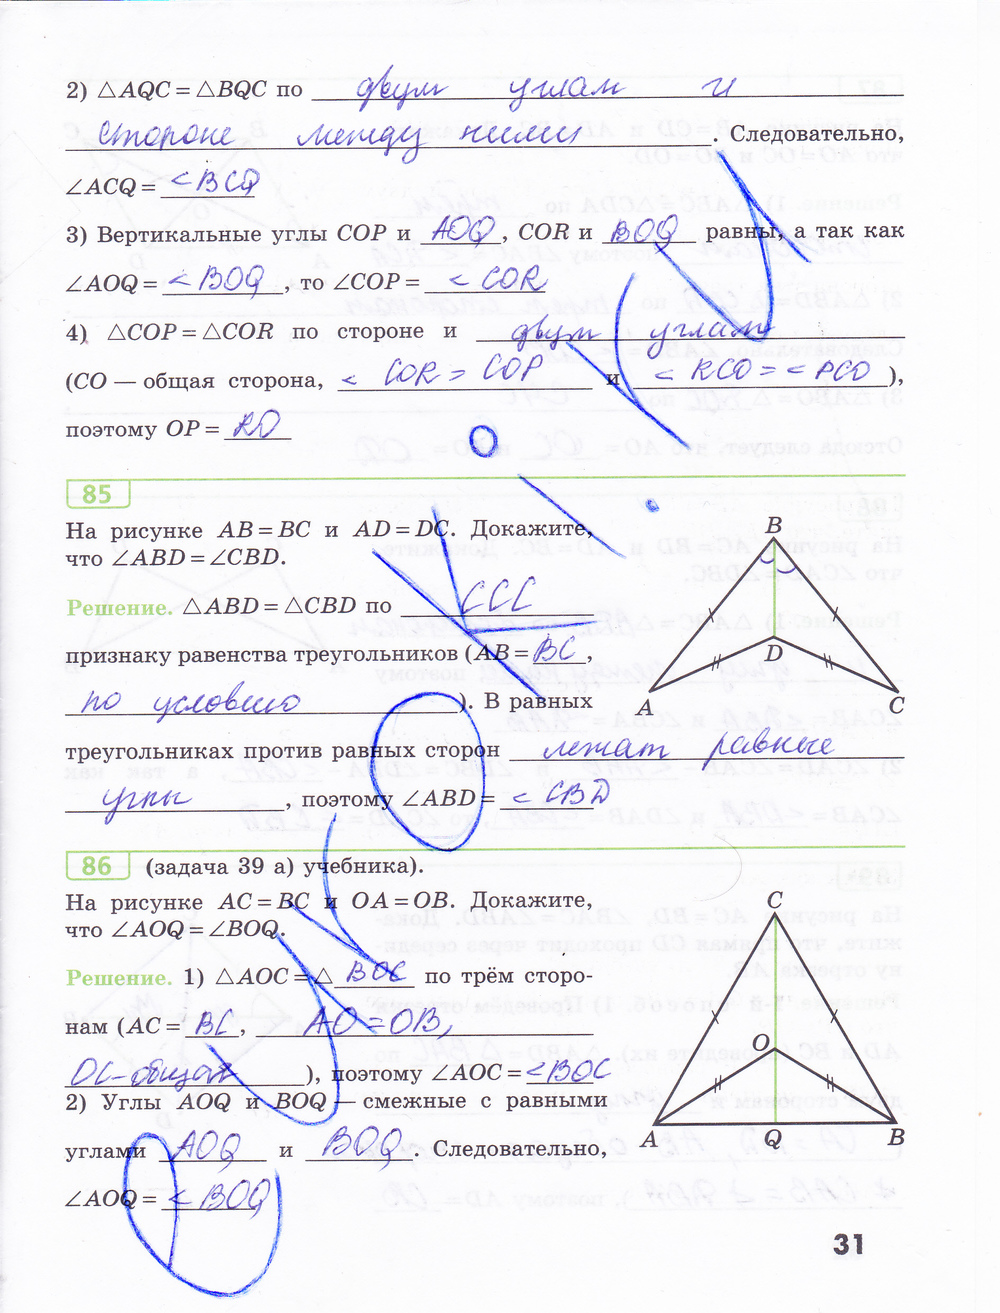 2) △AQC = △BQC по двум углам и
стороне между ними. Следовательно,
∠ACQ = <BCQ
3) Вертикальные углы COP и AOQ, COR и BOQ равны, а так как
∠AOQ = <BOQ, то ∠COP = <COR
4) △COP = △COR по стороне и двум углам
(CO — общая сторона, <COR = COP и <RCO = <PCO),
поэтому OP = RO
85
На рисунке AB = BC и AD = DC. Докажите,
что ∠ABD = ∠CBD.
Решение. △ABD = △CBD по CCC
признаку равенства треугольников (AB = BC,
по условию). В равных
треугольниках против равных сторон лежат равные
углы, поэтому ∠ABD = <CBD
B
D
A
C
86 (задача 39 а) учебника).
На рисунке AC = BC и OA = OB. Докажите,
что ∠AOQ = ∠BOQ.
Решение. 1) △AOC = △BOC по трём сторо-
нам (AC = BC, AO = OB,
OC-общая), поэтому ∠AOC = <BOC
2) Углы AOQ и BOQ — смежные с равными
углами AOQ и BOQ. Следовательно,
∠AOQ = <BOQ
C
O
A
Q
B
31